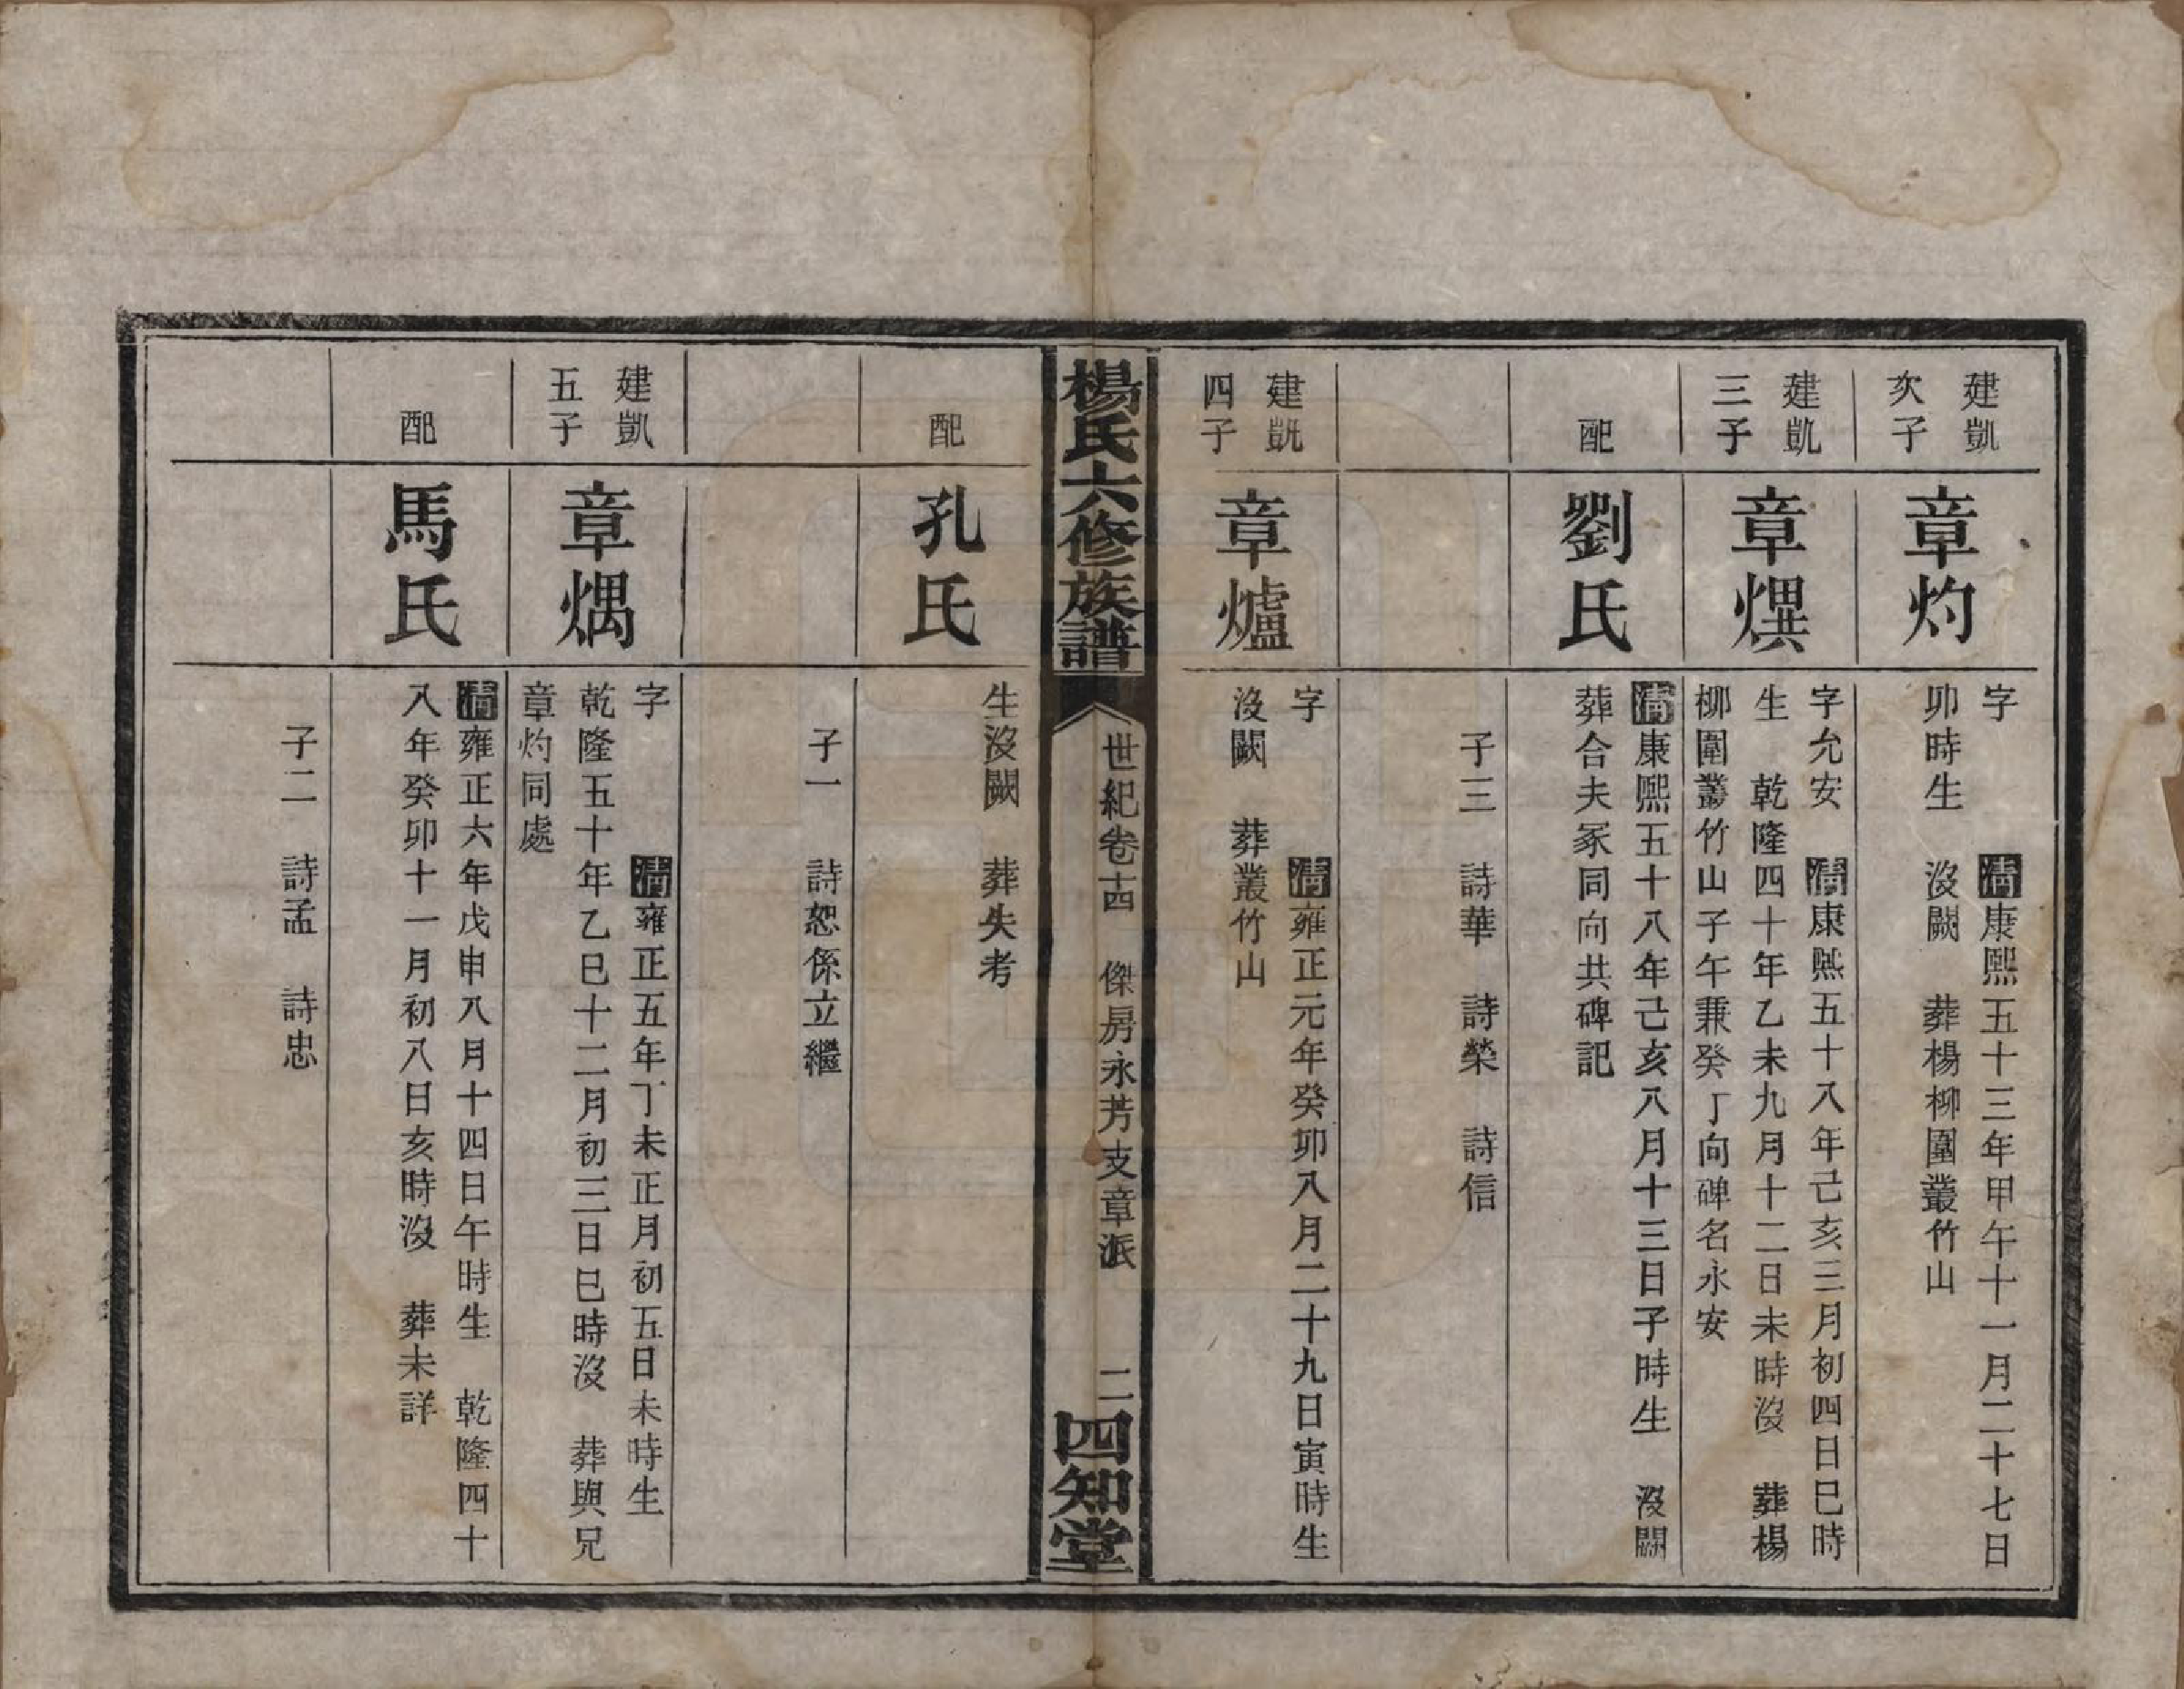 建凱
次子
章灼
字　　　清康熙五十三年甲午十一月二十七日
卯時生　沒闕　葬楊柳圍叢竹山
建凱
三子
章熼
字允安　清康熙五十八年己亥三月初四日巳時
生　乾隆四十年乙未九月十二日未時沒　葬楊
柳圍叢竹山子午兼癸丁向碑名永安
配
劉氏
清康熙五十八年己亥八月十三日子時生　沒闕
葬合夫冢同向共碑記
子三　詩華　詩榮　詩信
建凱
四子
章爐
字　　　清雍正元年癸卯八月二十九日寅時生
沒闕　葬叢竹山
楊氏六修族譜
世紀卷十四　傑房永芳支章派　二
四知堂
配
孔氏
生沒闕　葬失考
子一　詩恕係立繼
建凱
五子
章㷒
字　　　清雍正五年丁未正月初五日未時生
乾隆五十年乙巳十二月初三日巳時沒　葬與兄
章灼同處
配
馬氏
清雍正六年戊申八月十四日午時生　乾隆四十
八年癸卯十一月初八日亥時沒　葬未詳
子二　詩孟　詩忠